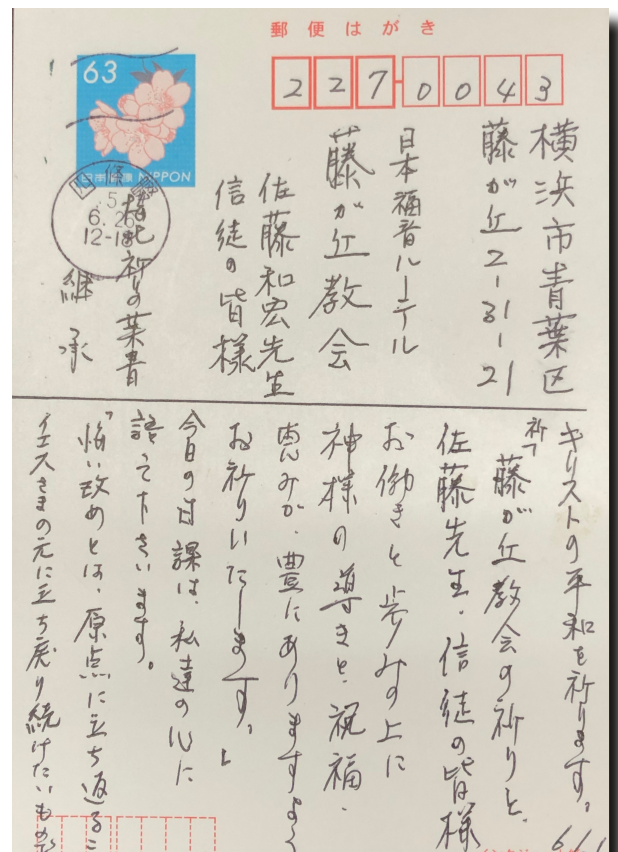 郵便はがき
227-0043
63
日本郵便 NIPPON
5.
6. 26
12-18
横浜市青葉区
藤が丘2-31-21
日本福音ルーテル
藤が丘教会
佐藤和宏先生
信徒の皆様
祈りの葉書
継承
キリストの平和を祈ります。
祈「藤が丘教会の祈りと、
佐藤先生、信徒の皆様
お働きと歩みの上に
神様の導きと、祝福、
恵みが、豊にありますよう
お祈りいたします。」
今日の日課は、私達の心に
語って下さいます。
「悔い改めとは、原点に立ち返るこ
イエスさまの元に立ち戻り続けたいもの